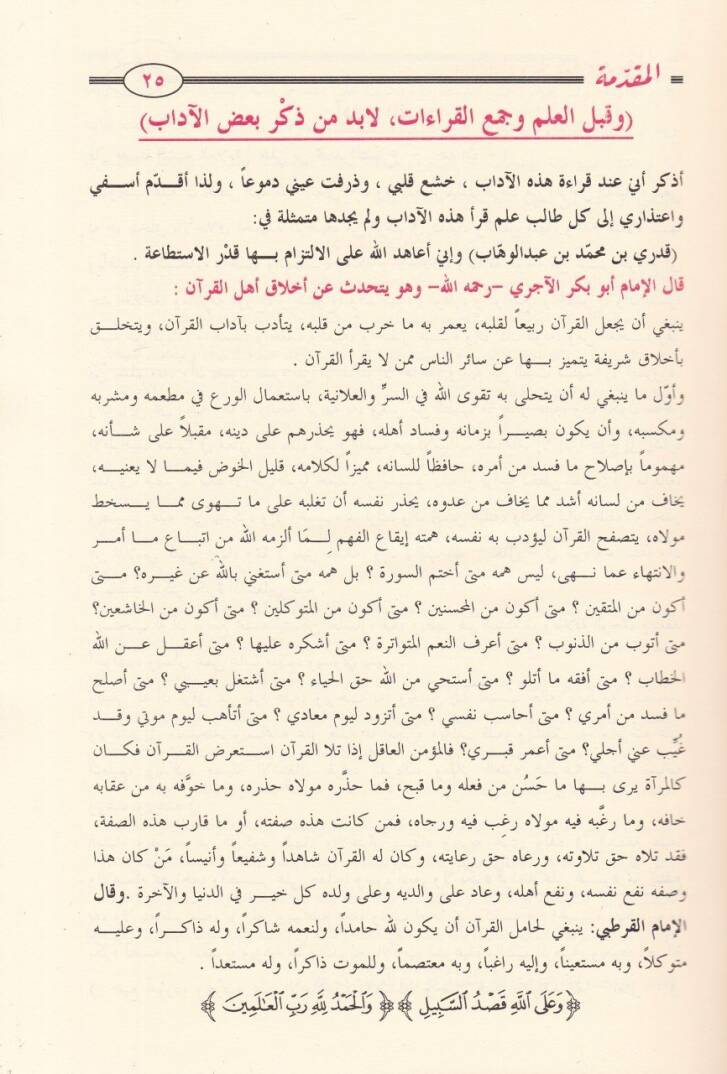 المقدّمة
٢٥
(وقبل العلم وجمع القراءات، لابد من ذكْر بعض الآداب)
أذكر أني عند قراءة هذه الآداب ، خشع قلبي ، وذرفت عيني دموعاً ، ولذا أقدّم أسفي
واعتذاري إلى كل طالب علم قرأ هذه الآداب ولم يجدها متمثلة في:
(قدري بن محمّد بن عبدالوهّاب) وإني أعاهد الله على الالتزام بها قدْر الاستطاعة .
قال الإمام أبو بكر الآجري -رحمه الله- وهو يتحدث عن أخلاق أهل القرآن :
ينبغي أن يجعل القرآن ربيعاً لقلبه، يعمر به ما خرب من قلبه، يتأدب بآداب القرآن، ويتخلق
بأخلاق شريفة يتميز بها عن سائر الناس ممن لا يقرأ القرآن .
وأوّل ما ينبغي له أن يتحلى به تقوى الله في السرِّ والعلانية، باستعمال الورع في مطعمه ومشربه
ومكسبه، وأن يكون بصيراً بزمانه وفساد أهله، فهو يحذرهم على دينه، مقبلاً على شأنه،
مهموماً بإصلاح ما فسد من أمره، حافظاً للسانه، مميزاً لكلامه، قليل الخوض فيما لا يعنيه،
يخاف من لسانه أشد مما يخاف من عدوه، يحذر نفسه أن تغلبه على ما تهوى مما يسخط
مولاه، يتصفح القرآن ليؤدب به نفسه، همته إيقاع الفهم لِمَا ألزمه الله من اتباع ما أمر
والانتهاء عما نهى، ليس همه متى أختم السورة ؟ بل همه متى أستغني بالله عن غيره؟ متى
أكون من المتقين ؟ متى أكون من المحسنين ؟ متى أكون من المتوكلين ؟ متى أكون من الخاشعين؟
متى أتوب من الذنوب ؟ متى أعرف النعم المتواترة ؟ متى أشكره عليها ؟ متى أعقل عن الله
الخطاب ؟ متى أفقه ما أتلو ؟ متى أستحي من الله حق الحياء ؟ متى أشتغل بعيبي ؟ متى أصلح
ما فسد من أمري ؟ متى أحاسب نفسي ؟ متى أتزود ليوم معادي ؟ متى أتأهب ليوم موتي وقد
غُيِّب عني أجلي؟ متى أعمر قبري؟ فالمؤمن العاقل إذا تلا القرآن استعرض القرآن فكان
كالمرآة يرى بها ما حَسُن من فعله وما قبح، فما حذَّره مولاه حذره، وما خوَّفه به من عقابه
خافه، وما رغَّبه فيه مولاه رغِب فيه ورجاه، فمن كانت هذه صفته، أو ما قارب هذه الصفة،
فقد تلاه حق تلاوته، ورعاه حق رعايته، وكان له القرآن شاهداً وشفيعاً وأنيساً، مَنْ كان هذا
وصفه نفع نفسه، ونفع أهله، وعاد على والديه وعلى ولده كل خير في الدنيا والآخرة .وقال
الإمام القرطبي: ينبغي لحامل القرآن أن يكون لله حامداً، ولنعمه شاكراً، وله ذاكراً، وعليه
متوكلاً، وبه مستعيناً، وإليه راغباً، وبه معتصماً، وللموت ذاكراً، وله مستعداً .
﴿وَعَلَى ٱللَّهِ قَصْدُ ٱلسَّبِيلِ ﴾ ﴿ وَٱلْحَمْدُ لِلَّهِ رَبِّ ٱلْعَٰلَمِينَ ﴾